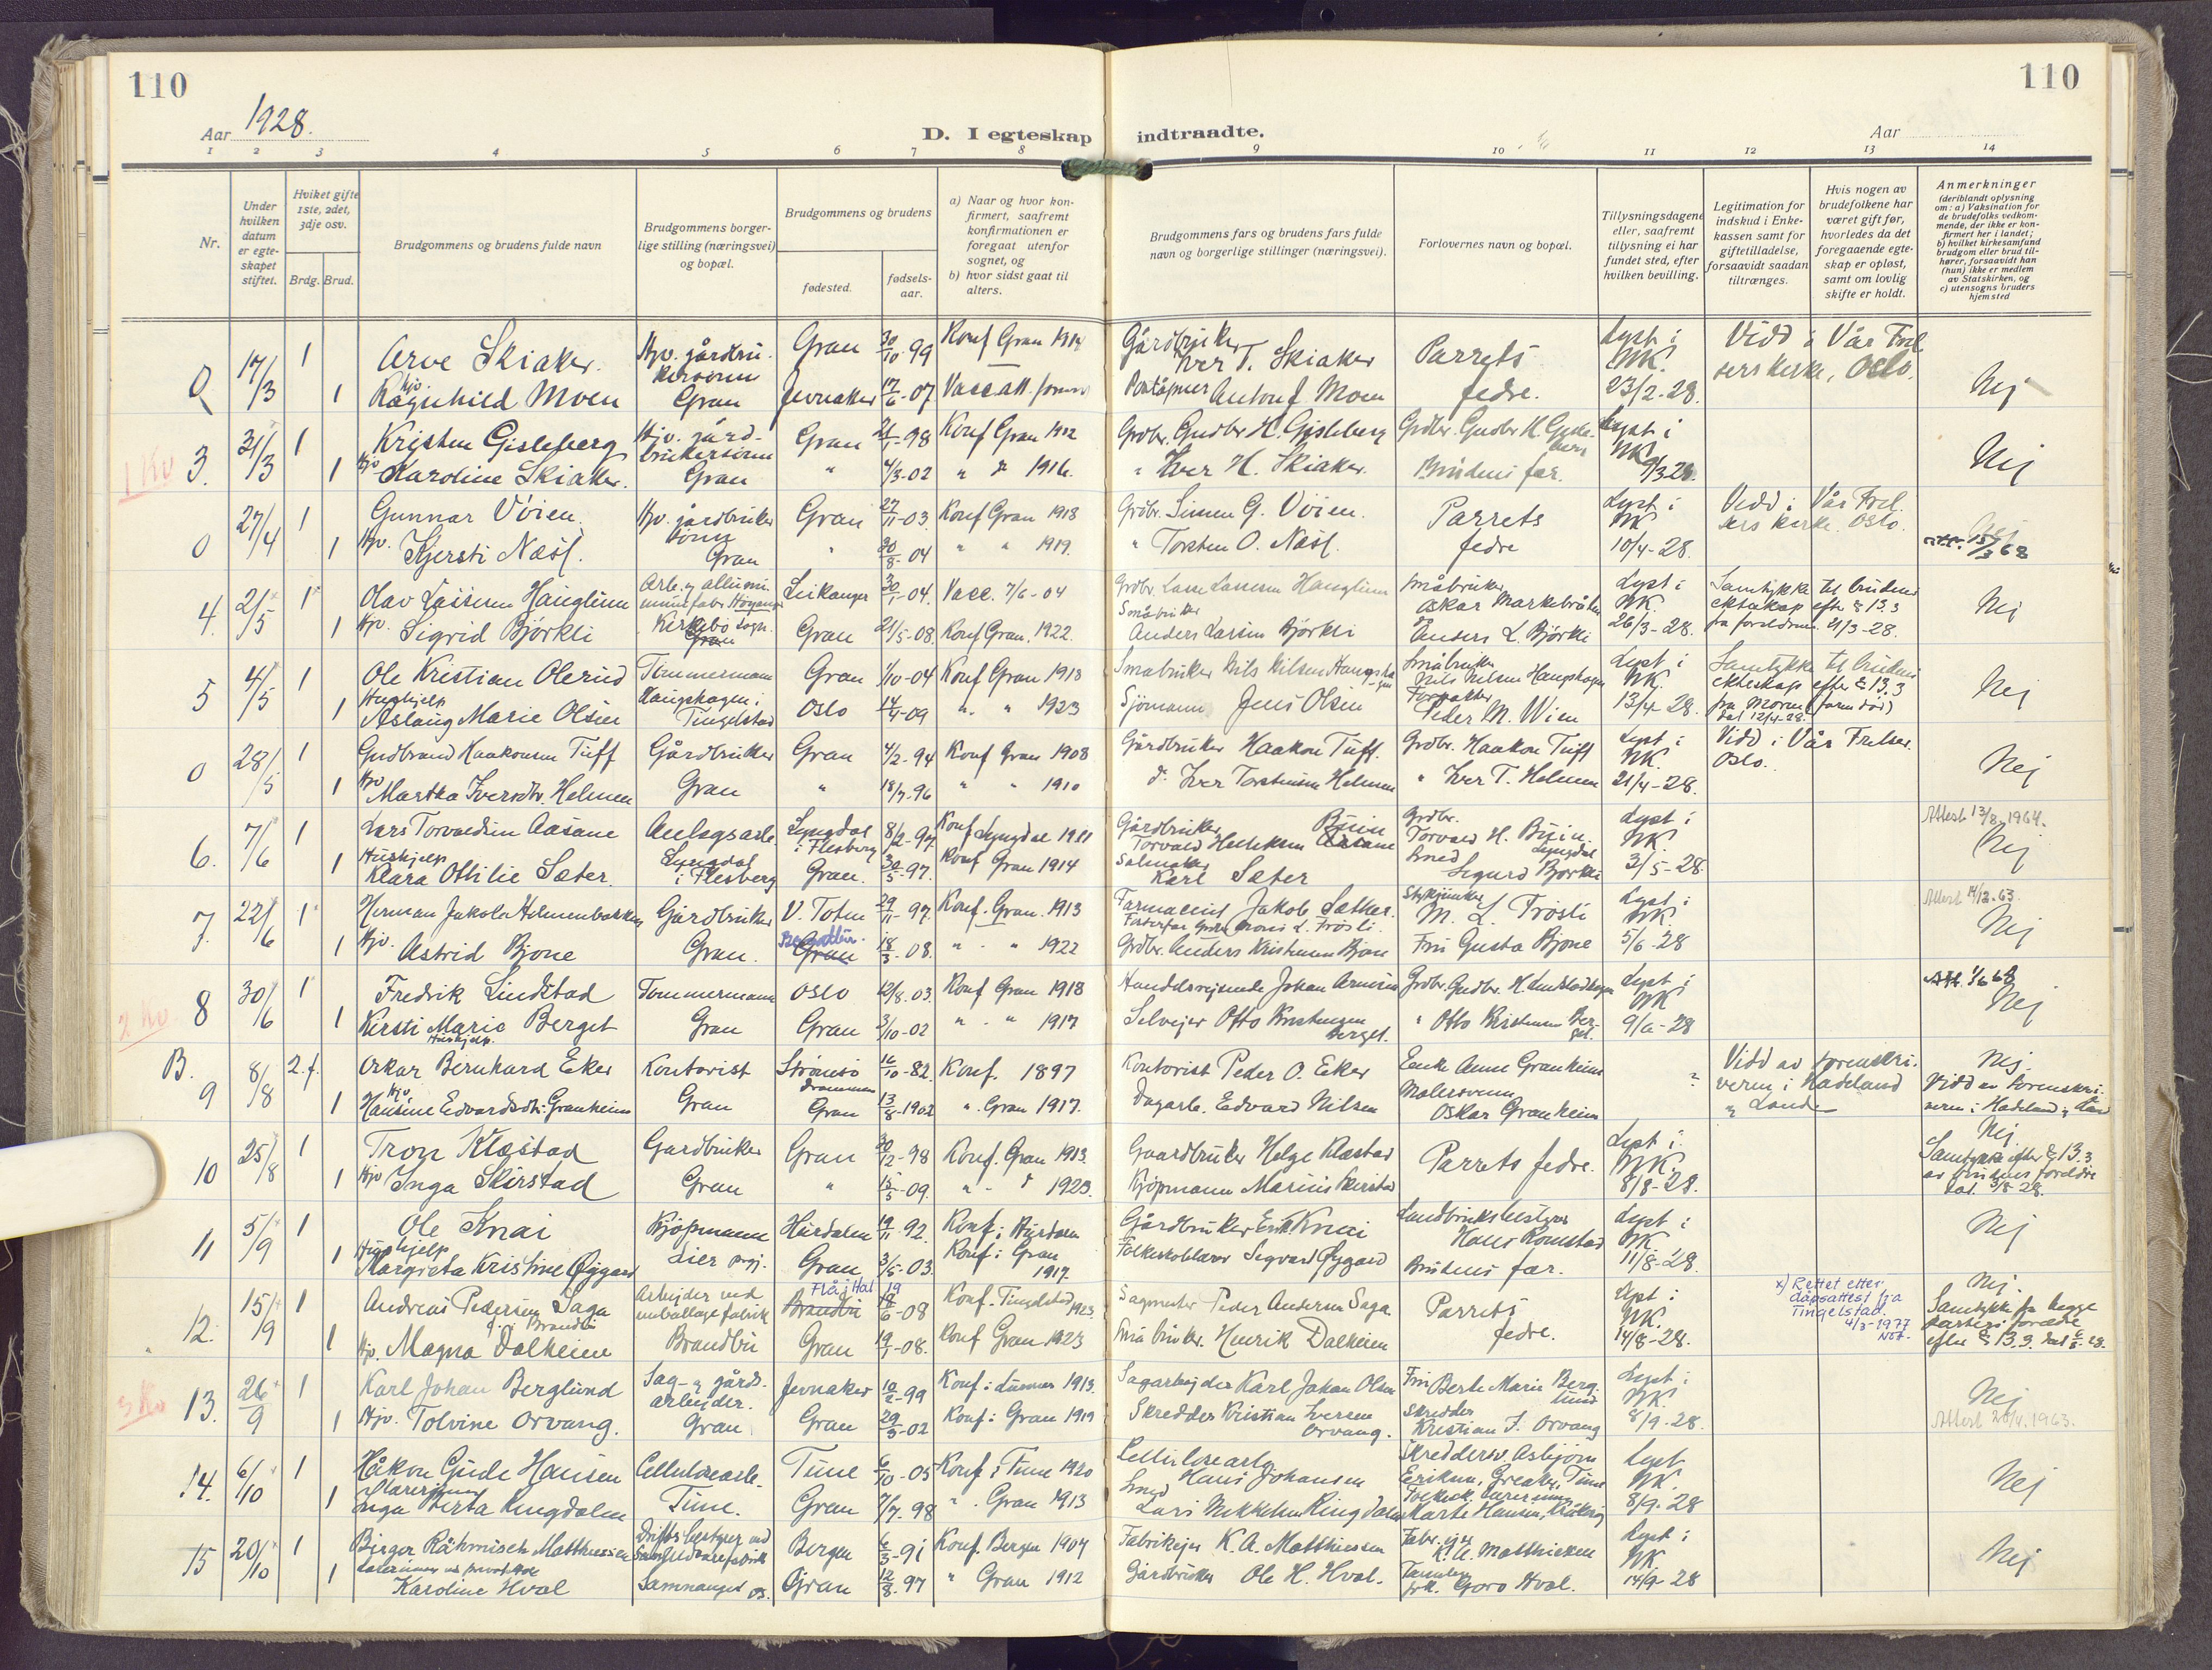 110
110
Aar 1928.
D. I egteskap
indtraadte.
Aar
1 2 3 4 5 6 7 8 9 10 11 12 13 14
Nr.
Under hvilken datum er egte-skapet stiftet.
Hvilket gifte 1ste, 2det, 3dje osv.
Brdg. Brud.
Brudgommens og brudens fulde navn
Brudgommens borger-lige stilling (næringsvei) og bopæl.
Brudgommens og brudens
fødested.
fødsels-aar.
a) Naar og hvor kon-firmert, saafremt konfirmationen er foregaat utenfor sognet, og
b) hvor sidst gaat til alters.
Brudgommens fars og brudens fars fulde navn og borgerlige stillinger (næringsvei).
Forlovernes navn og bopæl.
Tillysningsdagene eller, saafremt tillysning ei har fundet sted, efter hvilken bevilling.
Legitimation for indskud i Enke-kassen samt for giftetilladelse, forsaavidt saadan tiltrænges.
Hvis nogen av brudefolkene har været gift før, hvorledes da det foregaaende egte-skap er opløst, samt om lovlig skifte er holdt.
Anmerkninger (deriblandt oplysning om: a) Vaksination for de brudefolks vedkom-mende, der ikke er kon-firmert her i landet; b) hvilket kirkesamfund brudgom eller brud til-hører, forsaavidt han (hun) ikke er medlem av Statskirken, og c) utensogns bruders hjemsted
0 17/3 1 Arve Skiaker. Hjv. gårdbru-kersønn Gran 30/10-99 Konf Gran 1914 Gårdbruker Iver T. Skiaker Parrets Lyst i NK. Vidd i Vår Frel
1 Hjv. Ragnhild Moen Gran Jevnaker 17/6-07 Vacc att. Antonf Moen fedre. 23/2-28. sers kirke, Oslo. Nej
1 Kv 3. 31/3 1 Kristen Gisleberg Hjv. gård-brukersønn Gran 21/1-98 Konf Gran 1912 Grdbr. Gudbr H. Gisleberg Grdbr. Gudbr H. Gisle-berg Lyst i NK
1 Hjv Karoline Skiaker. Gran " 4/3-02 " " 1916. " Iver H. Skiaker. Brudens far. 9/3-28. Nej
0 27/4 1 Gunnar Vøien. Hjv. gårdbruker sønn Gran 27/11-03. Konf Gran 1918 Grdbr. Simen G. Vøien. Parrets Lyst i NK Vidd i Vår Frel.
1 Hjv. Kjersti Næss. Gran " 20/8-04 " " 1919. " Torsten O. Næss. fedre 10/4-28. sers kirke. Oslo. 15/3 68
4. 2/5 1 Olav Lassesen Hauglum Leikanger 30/1-04. Vacc. 7/6-04 Grdbr. Lasse Lassesen Hauglum Småbruker Oskar Markebråten Lyst i NK. Samtykke til brudens ekteskap efter § 13.3
1 Hjv. Sigrid Bjørkli Kirkebø sogn. Gran Gran 21/5-08. Konf Gran. 1922. Småbruker Anders Larsen Bjørkli og Anders L. Bjørkli 26/3-28. fra foreldrene 21/3-28. Nej
5 4/5 1 Ole Kristian Olerud Tømmermann Gran 1/10-04 Konf Gran 1918 Småbruker Nils Nilsen Haugshagen Småbruker Nils Nilsen Haugshagen Lyst i NK. Samtykke til brudens ekteskap efter § 13.3
1 Hushjelp Aslaug Marie Olsen Haugshagen i Tingelstad Oslo 14/4-09 " " 1923 Sjømann Jens Olsen Forpakter Peder M. Wien 13/4-28. fra moren (faren død) dat 12/4-28. Nej
0 28/5 1 Gudbrand Haakonsen Tuff Gårdbruker Gran 4/2-94 Konf Gran 1908 Gårdbruker Haakon Tuff. Grdbr. Haakon Tuff Lyst i NK. Vidd i Vår Frelser.
1 Hjv Martha Iversdtr. Helmen Gran " 18/7-96 " " 1910 d. Iver Torstensen Helmen " Iver T. Helmen 21/4-28. Oslo. Nej
6. 7/6 1 Lars Torvaldsen Aasane Anlegsarb. Lyngdal i Flesberg 8/2-97. Konf Lyngdal 1911 Gårdbruker Torvald Helleksen Aasane Grdbr. Torvald H. Lyngdal Lyst i NK Attest 13/8-1964.
1 Hushjelp Klara Ottilie Sæter. Lyngdal i Flesberg Gran. 30/5-97. Konf Gran 1914 Salmaker Karl Sæter Smed Sigurd Bjørkli 3/5-28. Nej
7. 22/6 1 Herman Jakob Helmenbakken Gårdbruker V. Toten 29/11-97. Konf. Gran. 1913 Farmaceut Jakob Sæther. Fosterfar M. L. Trøsli Lyst i NK Attest 14/12-63.
1 Hjv. Astrid Bjone Gran. Gran 18/3-08. " " 1922 Grdbr. Anders Kristensen Bjone Fru Gusta Bjone 5/6-28 Nej
2 Kv. 8 30/6 1 Fredrik Lindstad Tømmermann Oslo 12/8-03. Konf Gran 1918 Handelsreisende Johan Arnesen Grdbr. Gudbr. H. Lindstadhagen Lyst i NK
1 Kirsti Marie Berget Hushjelp. Gran Gran 3/10-02 " " 1917 Selveier Otto Kristensen Berget. " Otto Kristensen Ber-get. 9/6-28 Nej
B. 9 8/8 2. f. Oskar Bernhard Eker Kontorist Strømsø Drammen 16/10-82. Konf. 1897 Kontorist Peder O. Eker Enke Anne Grankeim ? Vidd av sorenskri-veren i Hadeland Nej.
1 Hjv. Hansine Edvardsdtr. Grankeim Gran Gran 13/8-1902 ". Gran 1917. Dagarb. Edvard Nilsen Malersvenn Oskar Grankeim " Land Vidd av Sorenskri-veren i Hadeland og Land
10 25/8 1 Tron Klæstad Gardbruker Gran 30/12-98 Konf. Gran 1913. Gaardbruker Helge Klæstad Parrets fedre. Lyst i NK. Nej.
1 Hjv Inga Skirstad Gran " 15/5-09. " " 1923. Kjøpmann Marius Skirstad 8/8-28. Samtykke efter § 13.3 av brudens foreldre dat. 3/8-28.
11 5/9 1 Ole Knai Kjøpmann Hurdalen 19/11-92. Konf. i Hurdalen Gårdbruker Erik Knai Landbruksbestyrer Hans Romstad Lyst i NK
1 Hushjelp Margreta Kristine Øygard Lier prgj. Gran 3/5-03. Konf i Gran 1917. Folkeskolelærer Segvard Øygard Brudens far. 11/8-28. Nej
12. 15/9 1 Andreas Pedersen Saga Arbeider ved emballagefabrik Flå i Hal Brandbu 19/6-08 Konf. Tingelstad 1923 Sagmester Peder Andersen Saga Parrets Lyst i NK. x) Rettet etter dåpsattest fra Tingelstad. 4/3-1977 Nej.
1 Hjv. Magna Dalheim Brandbu Gran 19/1-08. Konf Gran 1923 Småbruker. Henrik Dalheim fedre. 14/8-28. Samtykke fra begge parters foreldre efter § 13.3.
3 Kv 13. 26/9 1 Karl Johan Berglund Sag- og gårds-arbeider. Jevnaker 10/2-99 Konf i Lunner 1913. Sagarbeider Karl Johan Olsen Fru Berte Marie Berg-lund Lyst i NK.
1 Hjv. Tolvine Orvang. Gran Gran 29/3-02 Konf i Gran 1919 Skredder Kristian Iversen Orvang. Skredder Kristian I. Orvang 8/9-28. Nej Attest 1963.
14. 6/10 1 Håkon Gude Hansen Cellulosearb. Tune 6/10-05 Konf i Tune 1920 Cellulosearb. Hans Johansen Skreddersv. Asbjørn Eriksen, Greaker, Tune Lyst NK.
1 Lærerinne Inga Berta Ringdalen Tune. Gran 7/7-98 ". Gran 1913 Smed Lars Mikkelsen Ringdalen Marte Hansen, 8/9-28 Nej
15 20/10 1 Birger Råhmisch Matthiessen Driftsbestyrer ved Bergen 6/3-91 Konf. Bergen 1907 Fabrikeier K. A. Matthiessen Fabr. eier K. A. Matthiessen Lyst i NK.
1 Karoline Hval Samnanger Gran 12/8-97 " Gran 1912 Gårdbruker Ole H. Hval. frk. Goro Hval. 14/9-28 Nej